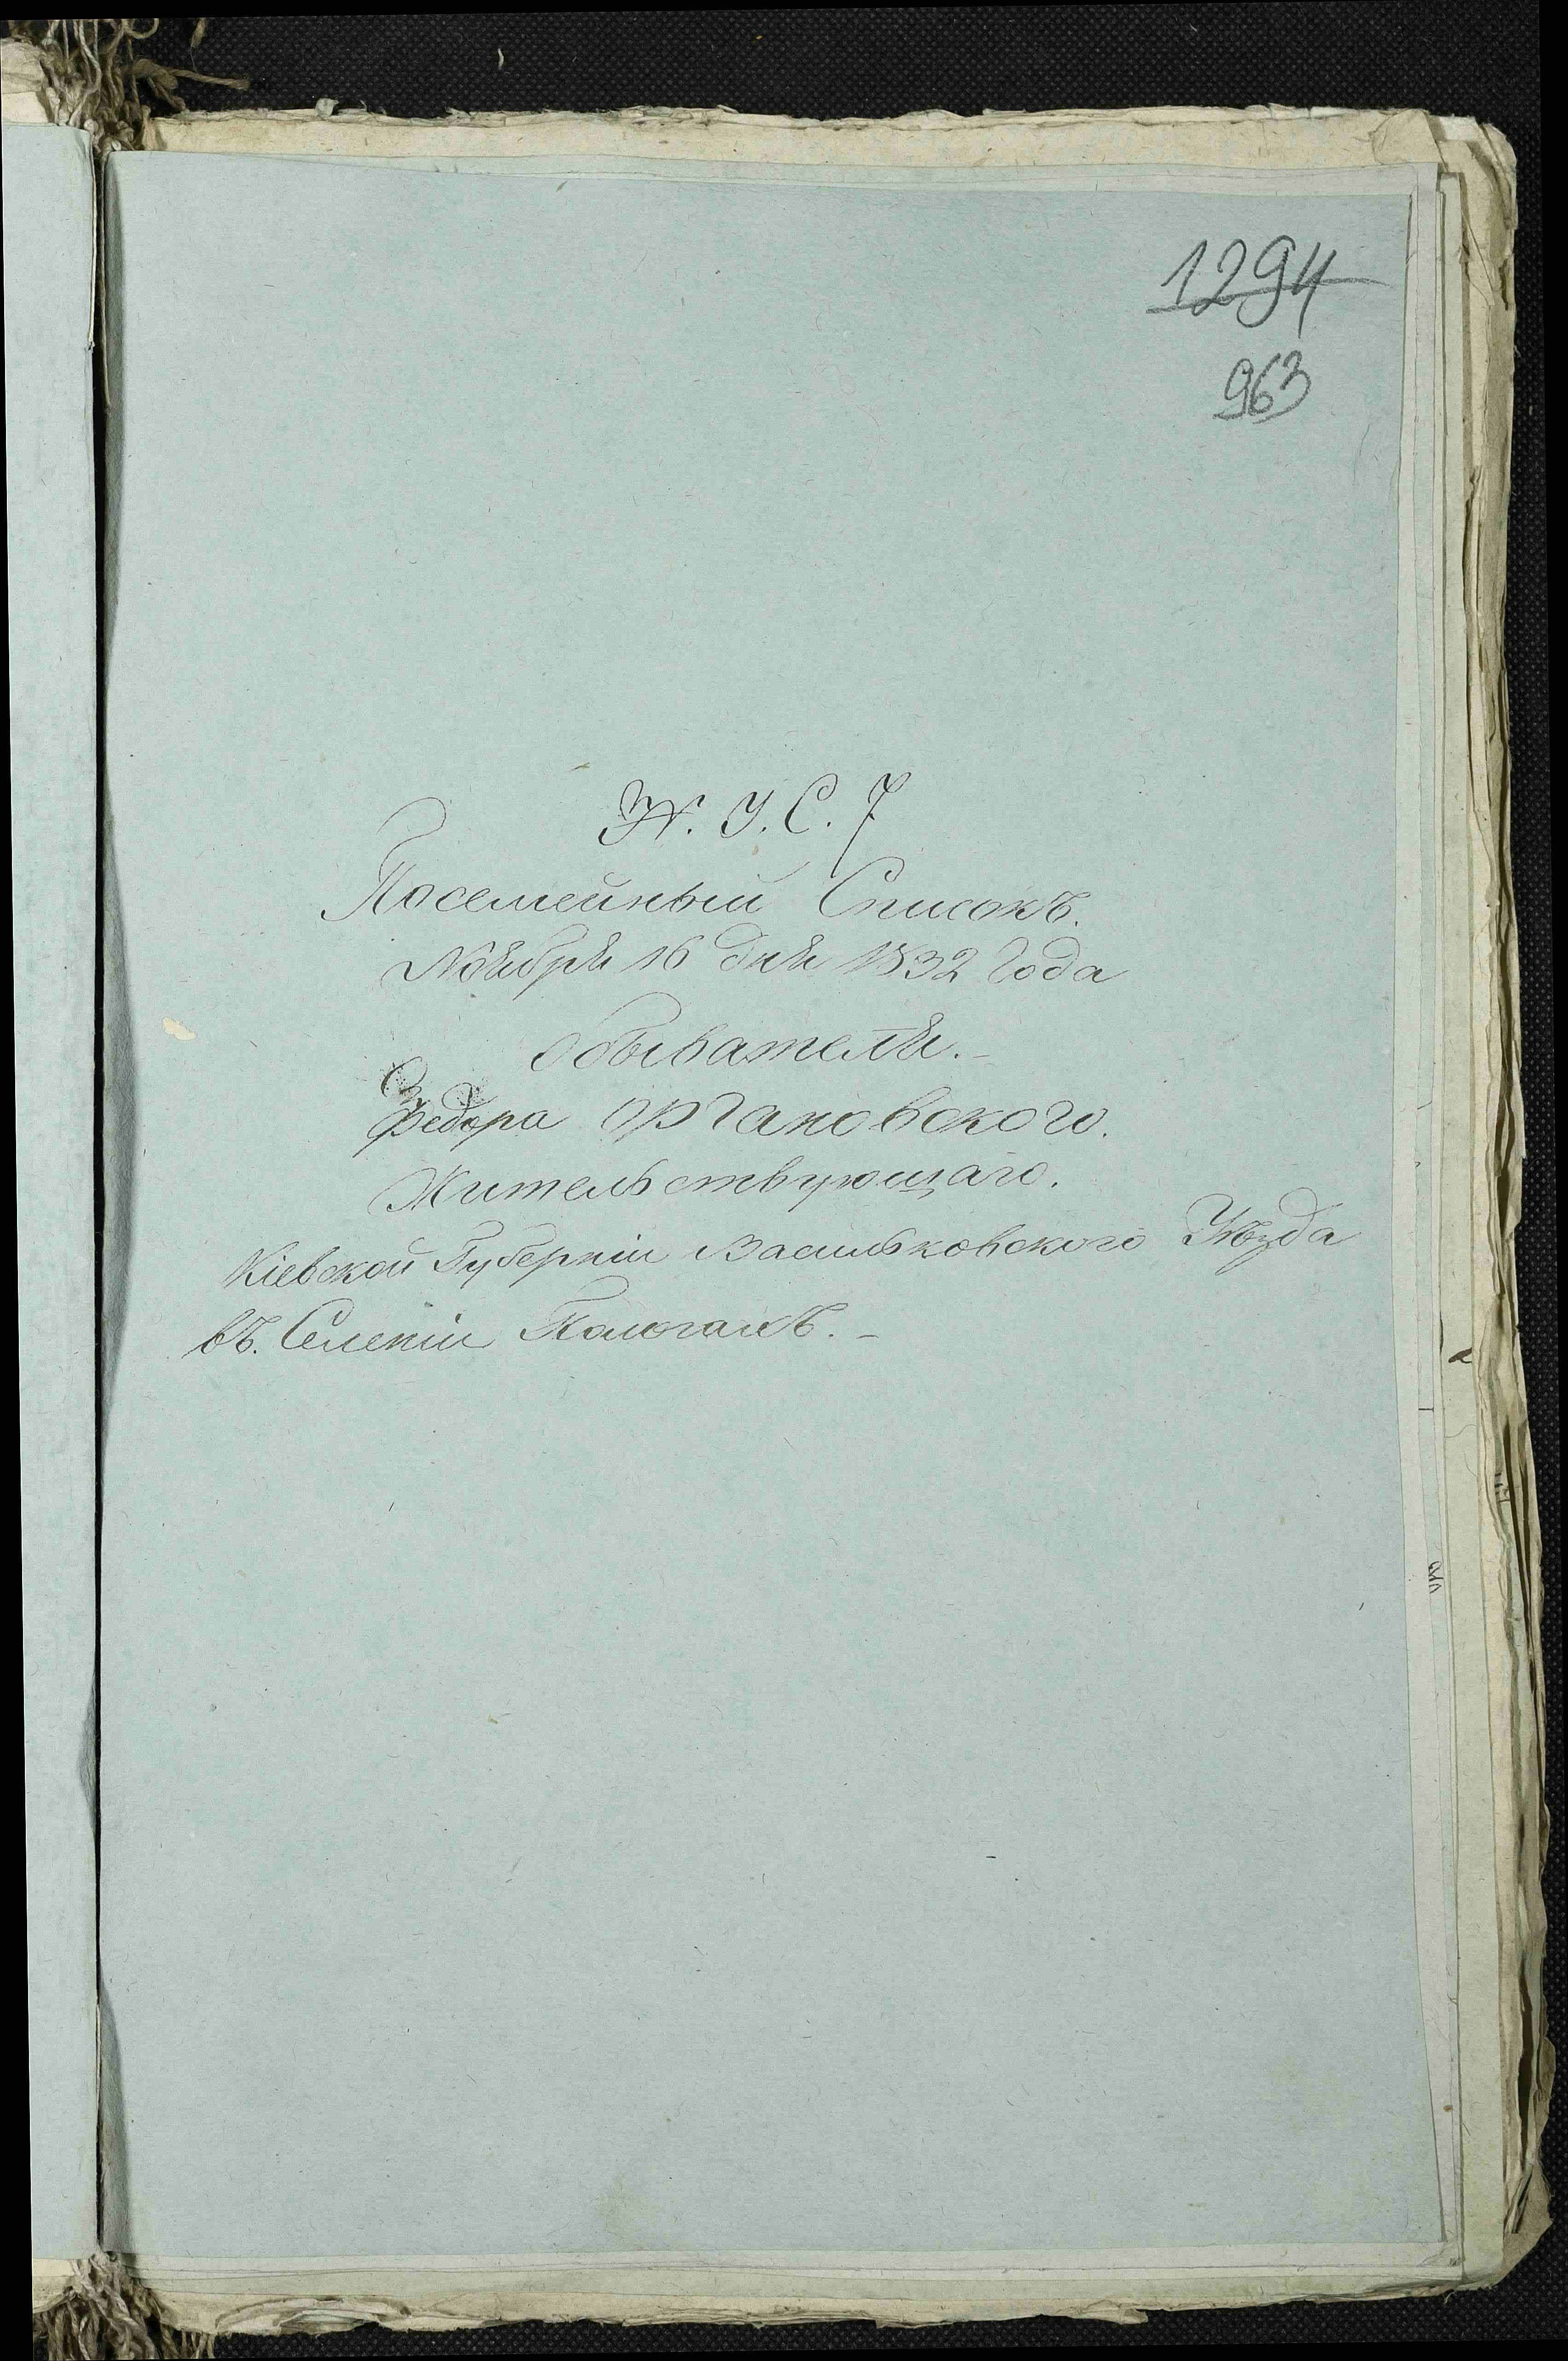 1294
963
Ж. У. С. 7
Посемейный Списокъ.
Ноября 16 дня 1832 Года
Обывателя.-
Федора Органовского.
Жительствующаго.
Кіевской Губерніи Васильковского Уѣзда
въ. Селеніи Пологахъ.-